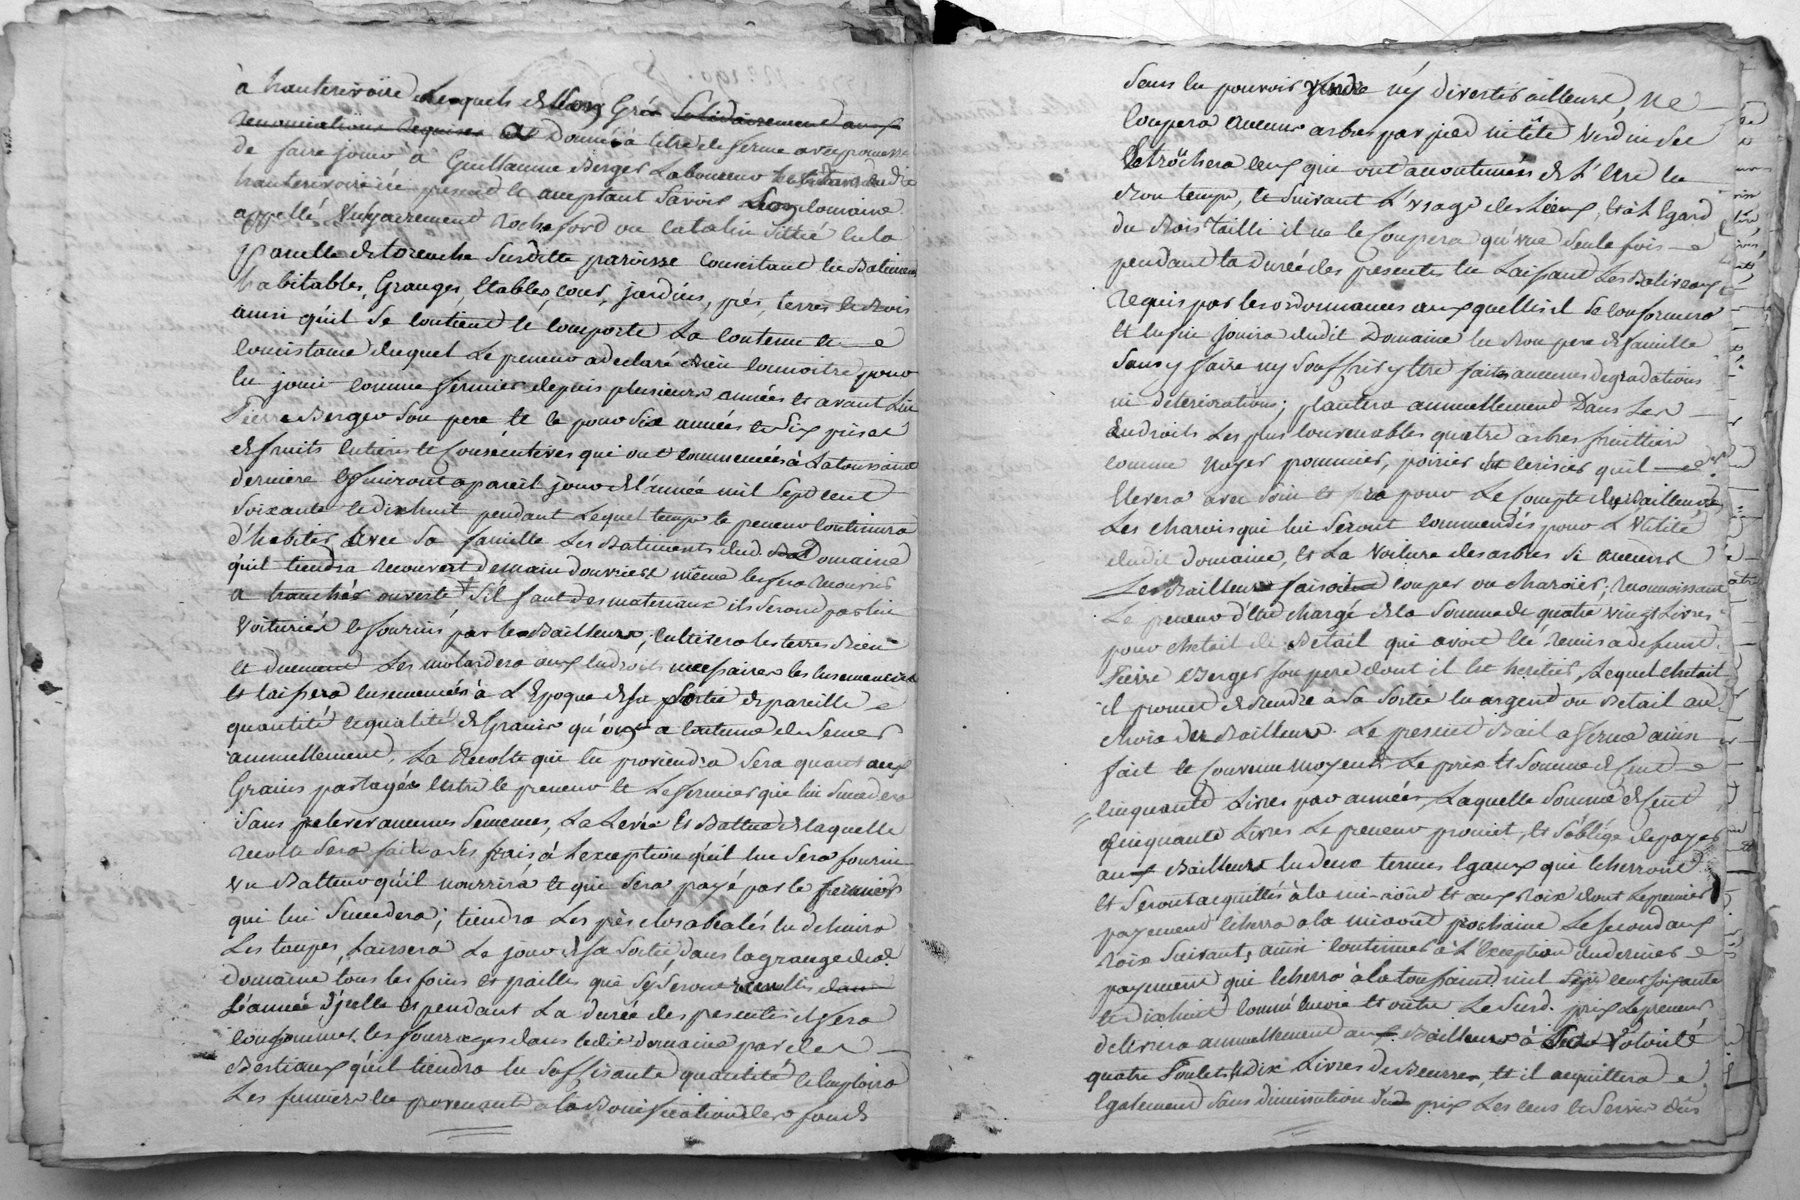 à hauterivoire Lesquels de Gré Solidairement aux
renonciations requises Donné à titre de ferme avec promesse
de faire jouir à Guillaume Berger Laboureur habitant dud.
hauterivoire icy present et acceptant savoir domaine
appellé Vulgairement Rocheford ou Catalin sittué en la
parcelle de torenche susditte paroisse Consistant en Batimens
habitables, Granges, Etables, cour, jardins, prés, terres et Bois
ainsi qu'il se contient et comporte La contenue et
Consistance duquel Le preneur a declaré Bien connoitre pour
en jouir comme fermier depuis plusieurs années et avant Lui
Pierre Berger son pere et ce pour Six années et Six prises
de fruits entieres et Consecutives qui ont commencées à La toussaint
derniere et finiront a pareil jour de l'année mil Sept cent
Soixante et dix huit pendant Lequel temps le preneur continuera
d'habiter avec Sa famille Les Batiments dud. Domaine
qu'il tiendra recouvert de main d'ouvriers même les fera recouvrir
a tranchée ouverte S'il faut des materiaux ils Seront par lui
Voiturés et fournis par les Bailleurs, Cultivera les terres Bien
et duement Les molardera aux endroits necessaires les ensemencera
et laissera ensemencées à L'Epoque de sa Sortie de pareille
quantité et qualité de Grains qu'on a coutume de Semer
annuellement, La Recolte qui en proviendra Sera quant aux
Grains partagée Entre le preneur et Le fermier qui lui Succedera
Sans prelever aucunes Semences, La Levée Et Battue de laquelle
recolte Sera faite a Ses frais, à L'exception qu'il lui Sera fourni
un Batteur qu'il nourrira et qui Sera payé par le fermier
qui lui Succedera; tiendra Les prés clos a Bealés en detruira
Les taupes, Laissera Le jour de sa Sortie, dans la grange dud.
Domaine tous les foins et pailles qui S'y Seront recueillis dans
L'année D'icelle Et pendant La durée des presentes il fera
Consommer les fourrages dans ledit Domaine par des
Bestiaux qu'il tiendra en Suffisante quantité et Employera
Les fumiers en provenants a la Bonification des fonds
Sans en pouvoir vendre ny divertir ailleurs, Ne
Coupera aucuns arbres par pied ni tête verd ni Sec
Etröchera ceux qui ont accoutumées de L'Etre en
Bon temps, et Suivant L'usage des Lieux, Et à L'Egard
du Bois Tailli il ne le Coupera qu'une Seule fois
pendant la Durée des presentes en Laissant Les Baliveaux
requis par les ordonnances auxquelles il Se conformera
Et enfin jouira dudit Domaine en Bon pere de famille
Sans y faire ny Souffrir y Etre faites aucunes degradations
ni deteriorations; plantera annuellement Dans Les
Endroits Les plus Convenables quatre arbres fruittiers
comme Noyer pommier, poirier et cerisier qu'il
Elevera avec Soin Et fera pour Le Compte des Bailleurs
Les charois qui lui Seront commandés pour L'Utilité
dudit Domaine, Et La Voiture des arbres Si aucuns
Les Bailleurs faisoient couper ou charoier; reconnoissant
Le preneur d'Etre chargé de la Somme de quatre vingt Livres
pour chetail de Betail qui avoit Eté remis a defunt
Pierre Berger son pere dont il Est heritier, Lequel chetail
il promet de Rendre a Sa Sortie en argent ou Betail au
choix des Bailleurs. Le present Bail a ferme ainsi
fait et Convenu moyennt. Le prix Et Somme de Cent
Cinquante Livres par années, Laquelle Somme de Cent
Cinquante Livres Le preneur promet, Et S'oblige de payer
aux Bailleurs en deux termes Egaux qui Echerront
Et Seront acquittés à la mi-août et aux Rois dont Le premier
payement Echerra a la mi août prochaine Le second aux
Rois Suivant, ainsi Continuer à L'exception du dernier
payement qui Echerra à la toussaint mil Sept cent Soixante
et dix huit comme Encore Et outre Le Susd. prix Le preneur
delivrera annuellement aux Bailleurs à Leur Volonté
quatre Poulets et Dix Livres de Beurre, Et il acquittera
Egalement Sans diminution dud prix Les cens et Servis dûs